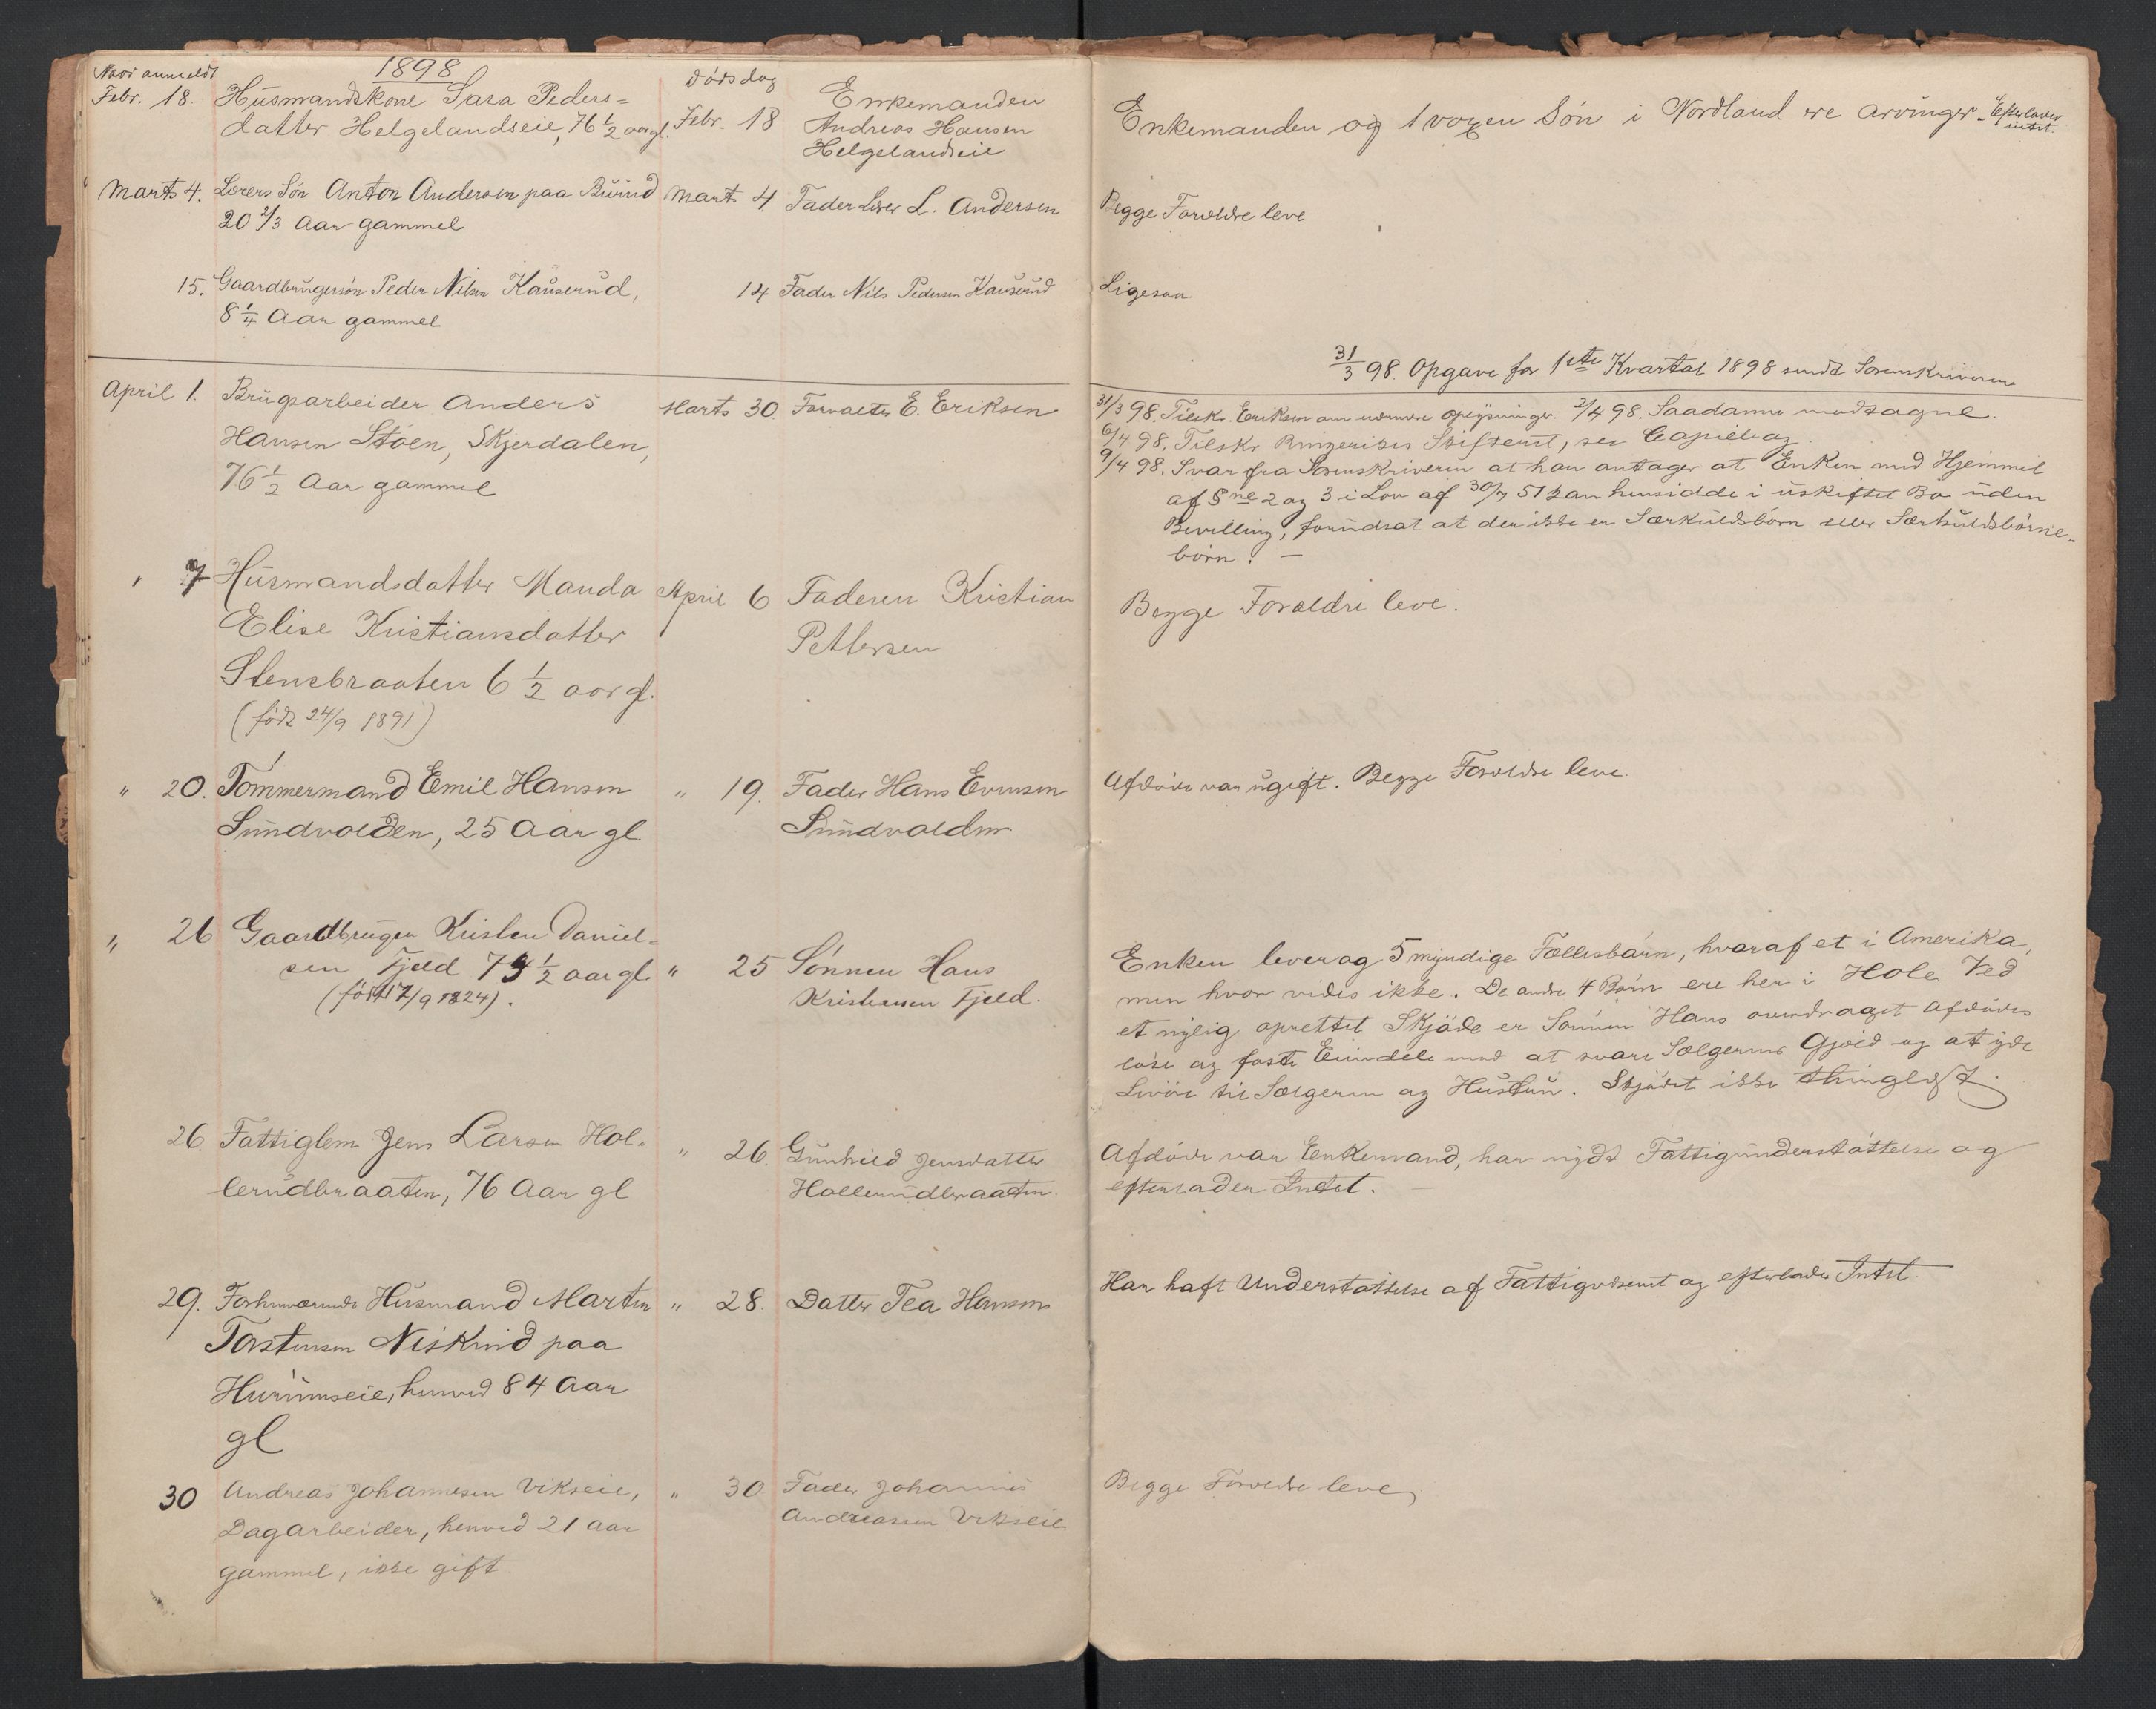 1898
Naar anmeldt
Dødsdag
Febr. 18. Husmandskone Sara Peders=
datter Helgelandseie, 76 1/2 aar gl.
Febr. 18
Enkemanden
Andreas Hansen
Helgelandseie
Enkemanden og 1 voxen Søn i Nordland ere arvinger. Efterlader
intet.
Marts 4. Lærers Søn Anton Andersen paa
20 2/3 Aar gammel
Marts 4 Fader Lærer L. Andersen
Begge Forældre leve
15. Gaardbrugersøn Peder Nilsen Kauserud,
8 1/4 Aar gammel
14 Fader Nils Pedersen Kauserud
Ligesaa
31/3 98. Opgave for 1ste Kvartal 1898 sendt Sorenskriveren
April 1. Brugsarbeider Anders
Hansen Støen, Skjerdalen,
76 1/2 Aar gammel
Marts 30. Forvalter E. Eriksen
31/3 98. Tilskr. Eriksen om nærmere oplysninger. 2/4 98. Saadanne modtagne.
6/4 98. Tilskr Ringeriges Skifteret, se Copiebog
9/4 98. Svar fra Sorenskriveren at han antager at Enken med Hjemmel
af §ne 2 og 3 i Lov af 30/7 51 kan hensidde i uskiftet Bo uden
Bevilling, forudsat at der ikke er Særkuldsbørn eller Særkuldsbørne-
børn. —
" 7 Husmandsdatter Manda
Elise Kristiansdatter
Stensbraaten 6 1/2 aar gl.
(født 24/9 1891)
April 6 Faderen Kristian
Pettersen
Begge Forældre leve.
" 20. Tømmermand Emil Hansen
Sundvolden, 25 Aar gl
" 19. Fader Hans Evensen
Sundvolden
Afdøde var ugift. Begge Forældre leve.
" 26 Gaardbruger Kristen Daniel=
sen Fjeld 73 1/2 aar gl.
(født 17/9 1824).
" 25 Sønnen Hans
Kristensen Fjeld.
Enken lever og 5 myndige Fællesbørn, hvoraf et i Amerika,
men hvor vides ikke. De andre 4 Børn ere her i Hole. Ved
et nylig oprettet Skjøde er Sønnen Hans overdraget afdødes
løse og faste Eiendele mod at svare Sælgerens Gjæld og at yde
Livøre til Sælgeren og Hustru. Skjødet ikke thinglæst.
26. Fattiglem Jens Larsen Hol-
lerudbraaten, 76 Aar gl
" 26. Gunhild Jensdatter
Hollerudbraaten.
Afdøde var Enkemand, har nydt Fattigunderstøttelse og
efterlader Intet. —
29. Forhenværende Husmand Martin
Torstensen Niskind paa
henved 84 Aar
gl
" 28. Datter Tea Hansens
Har haft Understøttelse af Fattigvæsenet og efterlader Intet
30 Andreas Johannesen Vikseie,
Dagarbeider, henved 21 Aar
gammel, ikke gift
" 30 Fader Johannes
Andreassen Vikseie
Begge Forældre leve